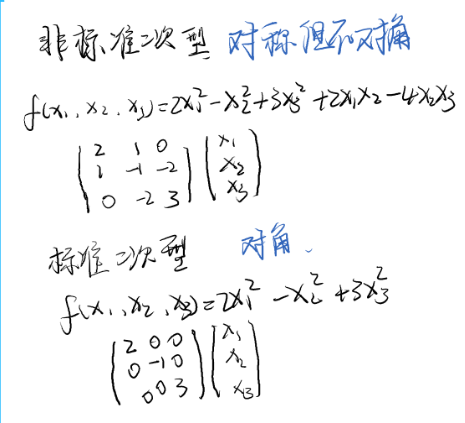 非标准二次型 对称但不对角
f(x₁,x₂,x₃)=2x₁²-x₂²+3x₃²+2x₁x₂-4x₂x₃
2 1 0 x₁
1 -1 -2 x₂
0 -2 3 x₃
标准二次型 对角.
f(x₁,x₂,x₃)=2x₁²-x₂²+3x₃²
2 0 0 x₁
0 -1 0 x₂
0 0 3 x₃